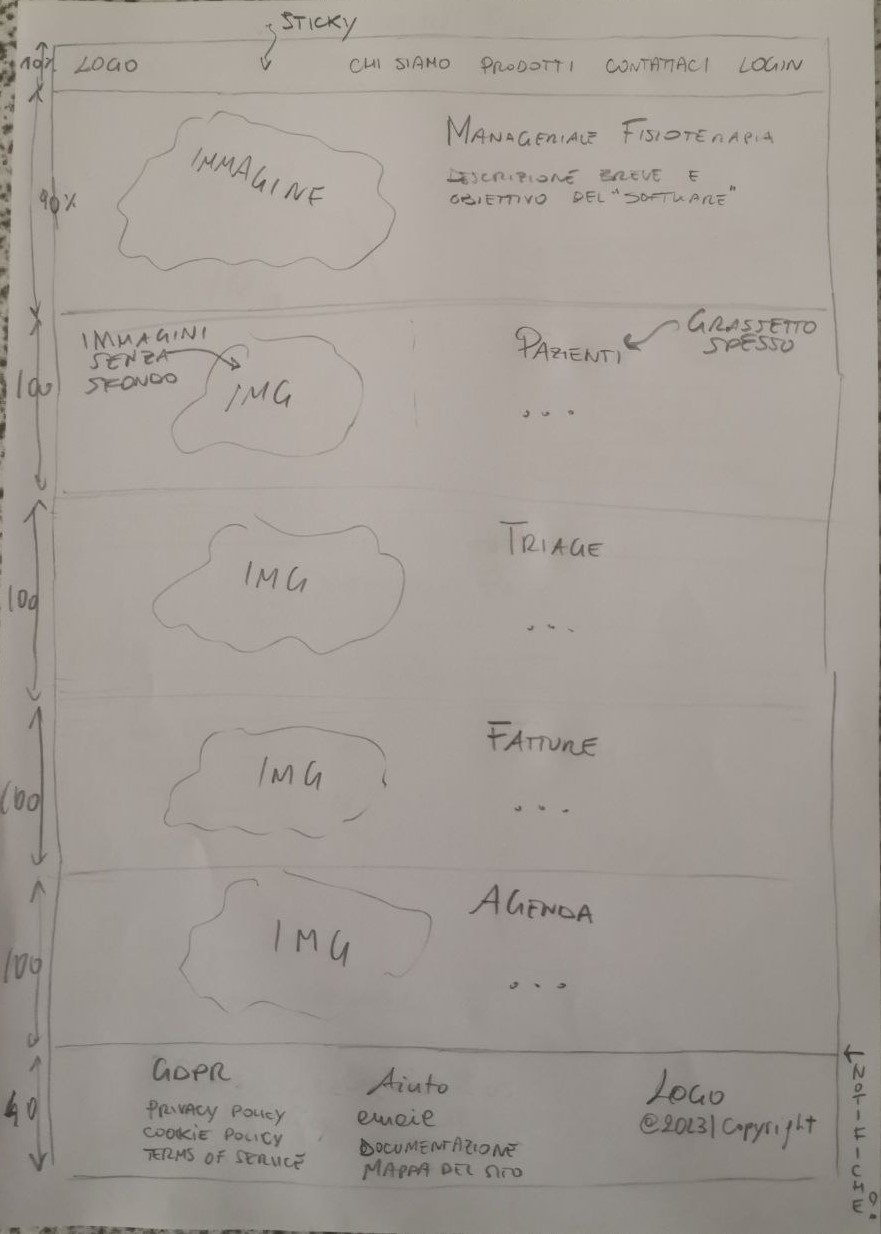 STICKY
10%
LOGO
CHI SIAMO PRODOTTI CONTATTACI LOGIN
IMMAGINE
MANAGERIALE FISIOTERAPIA
DESCRIZIONE BREVE E
OBIETTIVO DEL "SOFTWARE"
90%
IMMAGINI
SENZA
SFONDO
IMG
PAZIENTI
GRASSETTO
SPESSO
...
100
IMG
TRIAGE
...
100
IMG
FATTURE
...
100
IMG
AGENDA
...
100
GDPR
PRIVACY POLICY
COOKIE POLICY
TERMS OF SERVICE
Aiuto
email
DOCUMENTAZIONE
MAPPA DEL SITO
LOGO
@2023|Copyright
40
NOTIFICHE?